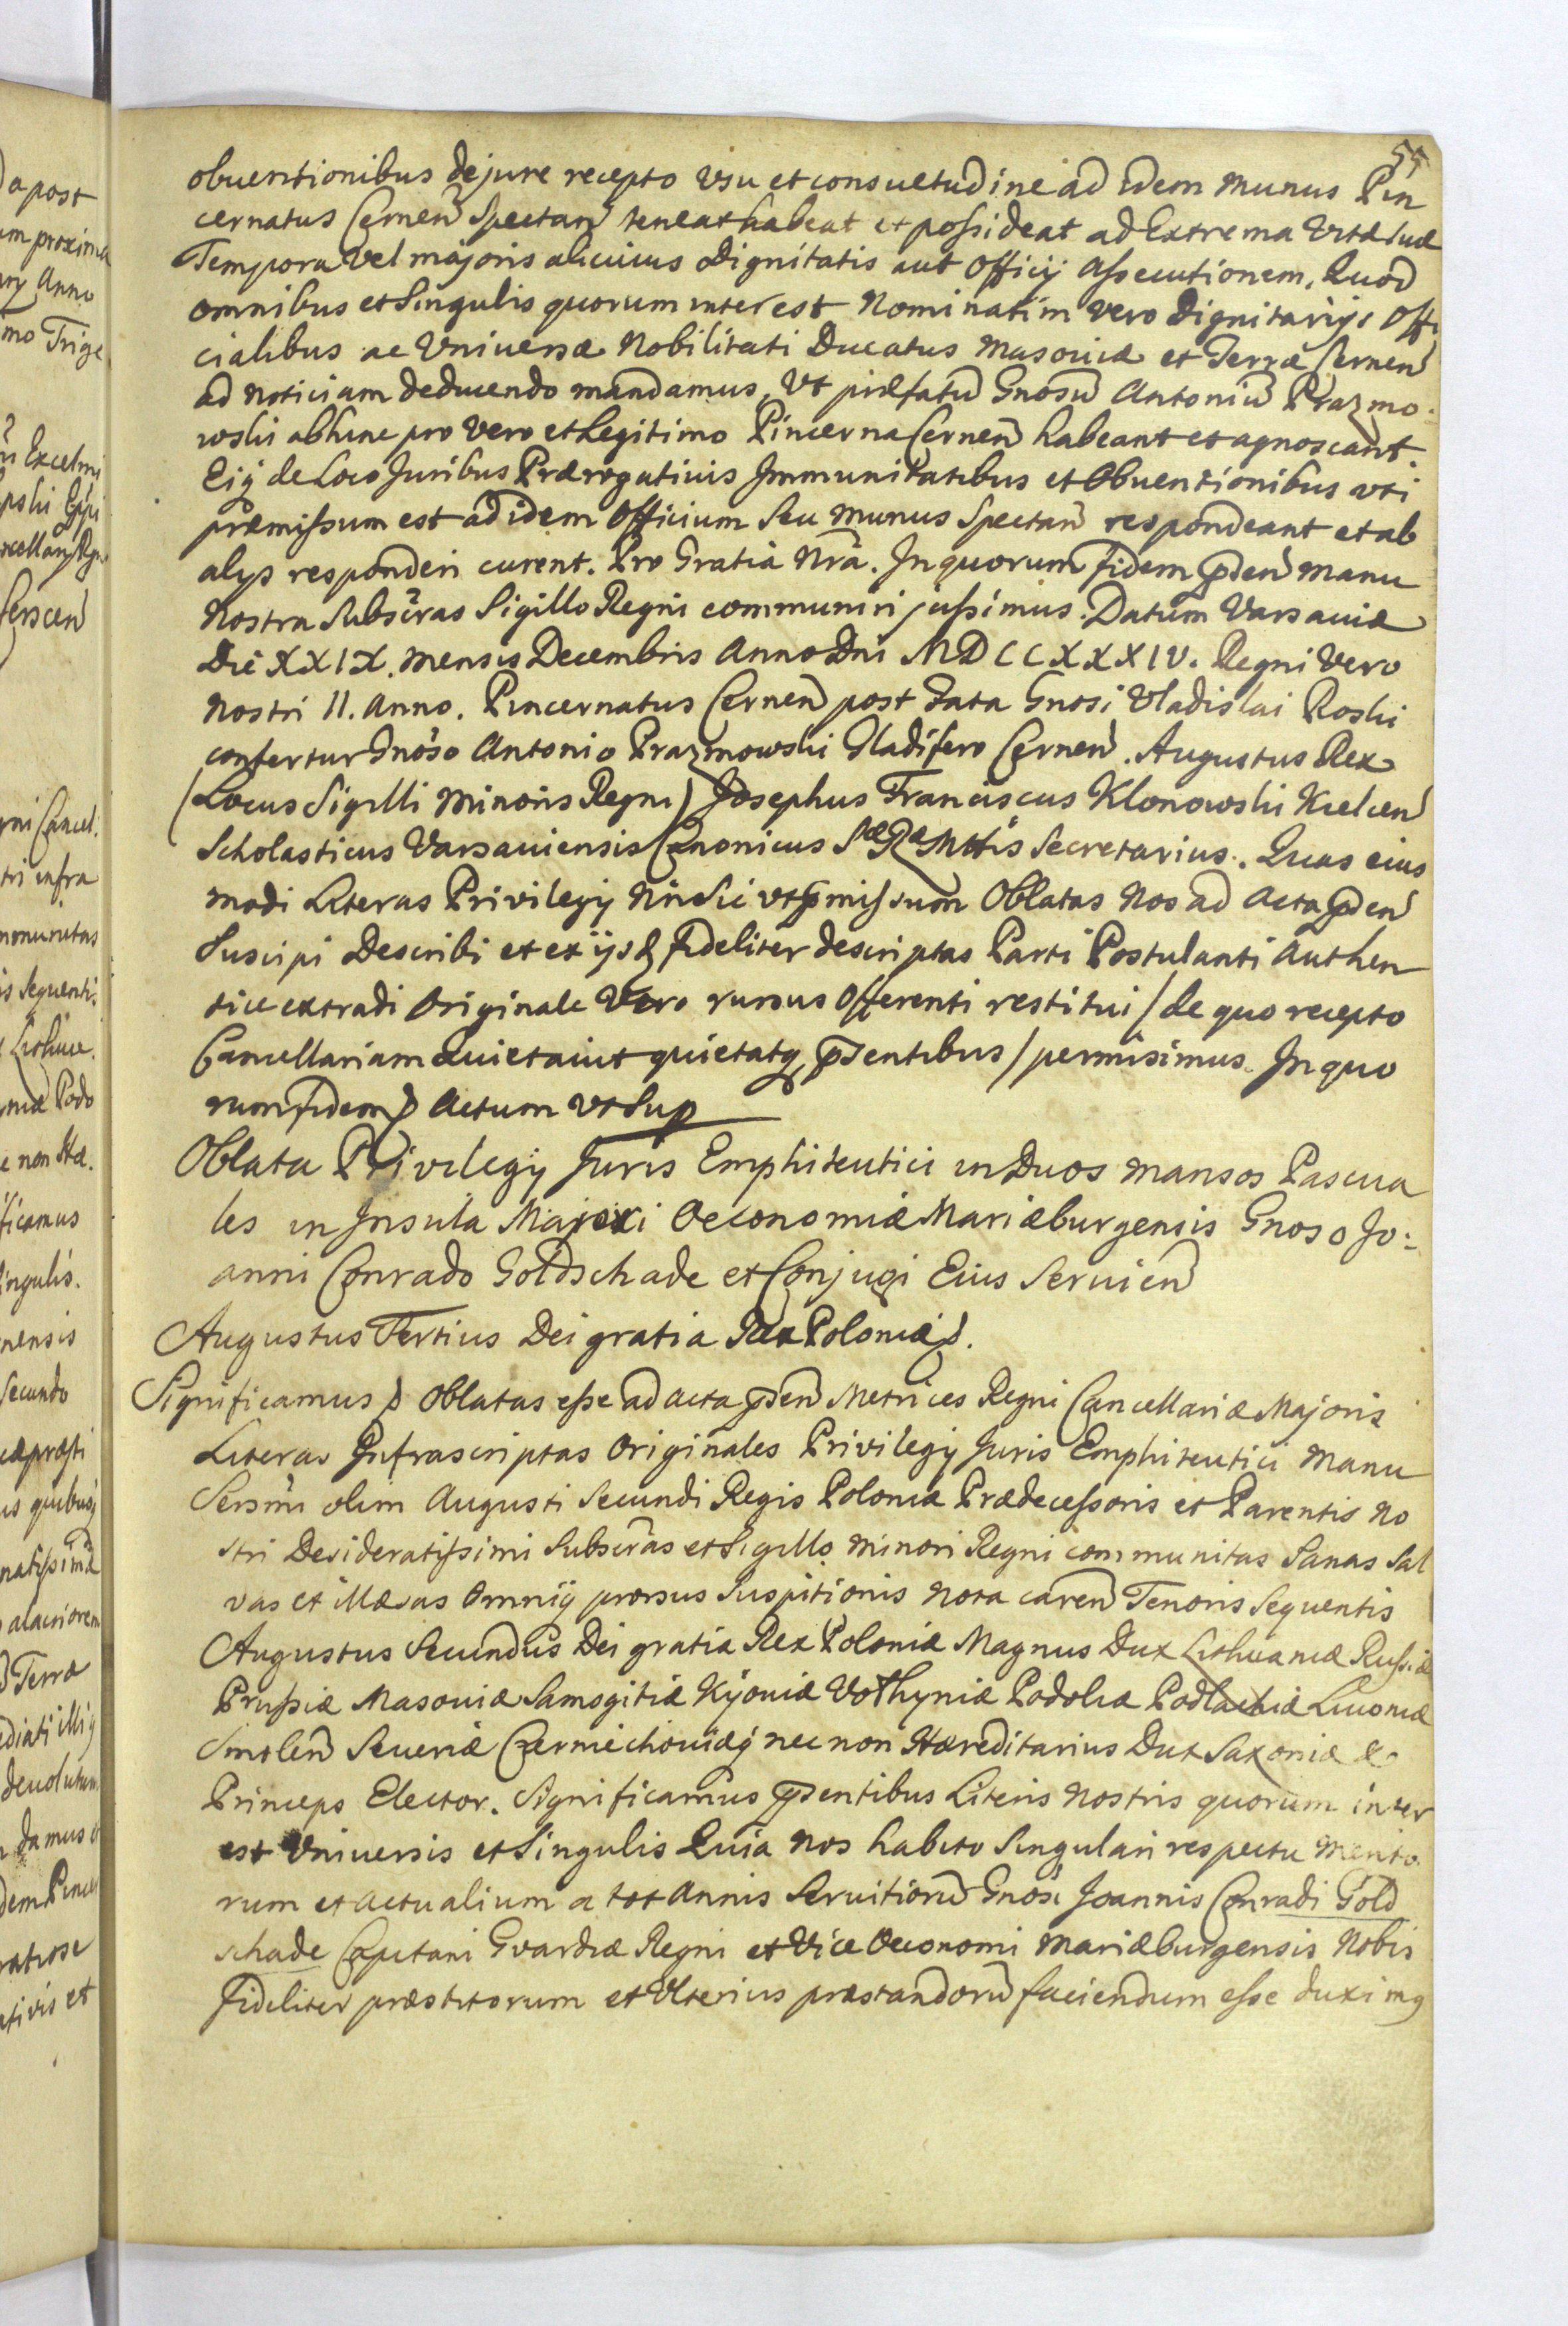 55
obuentionibus de jure recepto vsu et consuetudine ad idem munus Pin
cernatus Cernen̄ Spectan̄ teneat habeat et possideat ad Extrema Vitæ Suæ
Tempora Vel majoris alicuius Dignitatis aut Officij Assecutionem, Quod
omnibus et Singulis quorum interest Nominatim vero Dignitarijs Offi
cialibus ac Vniuersæ Nobilitati Ducatus Masouiæ et Terræ Cernen̄
ad notitiam deducendo mandamus, Vt præfatū Gnosū Antoniū Prazmo.
wski abhinc pro Vero et Legitimo Pincerna Cernen̄ habeant et agnoscant.
Eiq de Loco Juribus Prærogatiuis Jmmunitatibus et Obuentionibus vti
præmissum est ad idem Officium Seu munus Spectan̄ respondeant et ab
alys responderi curent. Pro Gratia Nrā. Jn quorum fidem p̄sen̄ manu
Nostra Subscr̄as Sigillo Regni communiri jussimus. Datum Varsauiæ
Die XXIX. mensis Decembris Anno Dni MDCCXXXIV. Regni Vero
Nostri II. Anno. Pincernatus Cernen̄ post Fata Gnosi Vladislai Roski
confertur Gnōso Antonio Prazmowski Gladifero Cernen̄. Augustus Rex
(Locus Sigilli Minoris Regni) Josephus Franciscus Klonowski Kielcen̄
Scholasticus Varsauiensis Canonicus Sæ Ræ Mttis Secretarius. Quas eius
modi Literas Privilegij Nr̄i Sic vt p̄missum Oblatas Nos ad Acta p̄sen̄
Suscipi Describi et ex ijsd fideliter descriptas Parti Postulanti Authen
tice extradi Originale Vero rursus Offerenti restitui / de quo recepto
Cancellariam quietauit quietatq, p̄sentibus / permisimus. Jn quo
rum fidem & Actum vt Sup
Oblata Privilegij Juris Emphiteutici in Duos Mansos Pascua
les in Jnsula Majori Oeconomiæ Mariæburgensis Gnoso Jo:
anni Conrado Goldschade et Conjugi Eius Seruien̄
Augustus Tertius Dei gratia Rex Poloniæ &.
Significamus & Oblatas esse ad acta p̄sen̄ Metrices Regni Cancellariæ Majoris
Literas Jnfrascriptas Originales Privilegij Juris Emphiteutici Manu
Sersm̄i olim Augusti Secundi Regis Poloniæ Prædecessoris et Parentis No
stri Desideratissimi Subscr̄as et Sigillo Minori Regni communitas Sanas Sal
vas et illæsas Omniq prorsus Suspitionis Nota caren̄ Tenoris Sequentis
Augustus Secundus Dei gratia Rex Poloniæ Magnus Dux Lithuaniæ Russiæ
Prussiæ Masouiæ Samogitiæ Kijouiæ Volhyniæ Podoliæ Podlachiæ Liuoniæ
Smolen̄ Seueriæ Czerniechouiæq nec non Hæreditarius Dux Saxoniæ &
Princeps Elector. Significamus p̄sentibus Literis Nostris quorum inter
est Vniuersis et Singulis Quia Nos habito Singulari respectu Merito
rum et Actualium a tot Annis Seruitiorū Gnosi Joannis Conradi Gold
schade Capitani Gvardiæ Regni et Vice Oeconomi Mariæburgensis Nobis
Fideliter præstitorum et Vlterius præstandorū faciendum esse duximq